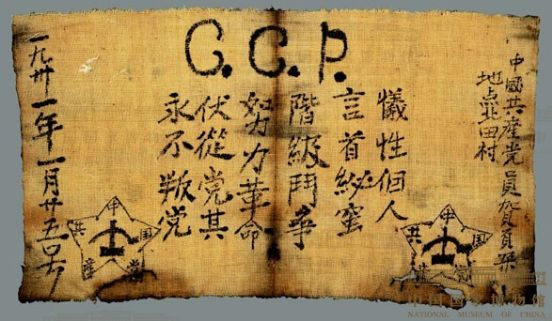 C.C.P.
中國共產党員賀頁朵
地点北田村
犧牲個人
言首秘蜜
階級鬥争
努力革命
伏從党其
永不叛党
一九卅一年一月廿五号
中国共產党
中国共
中国国家博物馆
NATIONAL MUSEUM OF CHINA